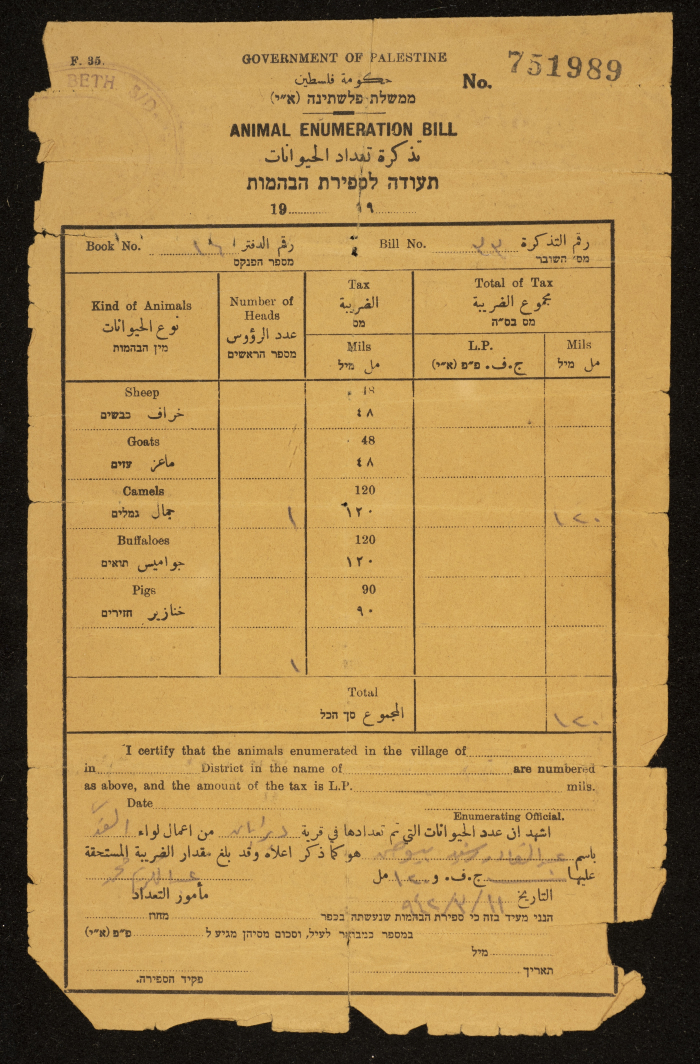 F. 35.
BETH
GOVERNMENT OF PALESTINE
حكومة فلسطين
ממשלת פלשתינה (א״י)
No. 751989
ANIMAL ENUMERATION BILL
تذكرة تعداد الحيوانات
תעודה לספירת הבהמות
19 ١٩
Book No. ١٤٦ رقم الدفتر Bill No. ٣٣ رقم التذكرة
מספר הפנקס מס׳ השובר
Kind of Animals Number of Heads Tax Total of Tax
نوع الحيوانات عدد الرؤوس الضريبة مجموع الضريبة
מין הבהמות מספר הראשים מס מס בס״ה
Mils L.P. Mils
مل מיל ج.ف. פ״פ (א״י) مل מיל
Sheep 48
خراف כבשים ٤٨
Goats 48
ماعز עזים ٤٨
Camels 120
جمال גמלים ١ ١٢٠ ١٢٠
Buffaloes 120
جواميس תואים ١٢٠
Pigs 90
خنازير חזירים ٩٠
١
Total
المجموع סך הכל ١٢٠
I certify that the animals enumerated in the village of
in District in the name of are numbered
as above, and the amount of the tax is L.P. mils.
Date
Enumerating Official.
اشهد ان عدد الحيوانات التي تم تعدادها في قرية من اعمال لواء
باسم هو كما ذكر اعلاه وقد بلغ مقدار الضريبة المستحقة
عليها ج.ف. و ١٢٠ مل
التاريخ ١١/٣/٩٤٢ مأمور التعداد
הנני מעיד בזה כי ספירת הבהמות שנעשתה בכפר מחוז
במספר כמבואר לעיל, וסכום מסיהן מגיע ל פ״פ (א״י)
מיל
תאריך פקיד הספירה.